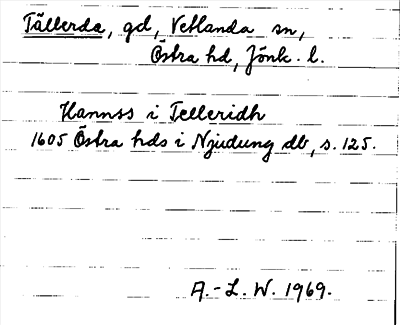 Tällerda, gd, Vetlanda sn,
Östra hd, Jönk. l.
Hannss i Telleridh
1605 Östra hds i Njudung db, s. 125.
A.-L. W. 1969.